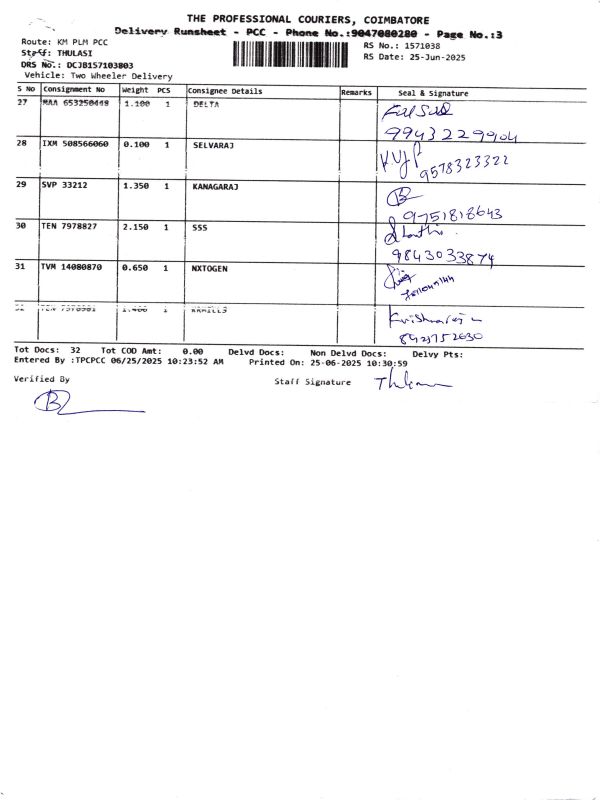 THE PROFESSIONAL COURIERS, COIMBATORE
Delivery Runsheet - PCC - Phone No.:9047080280 - Page No.:3
Route: KM PLM PCC
Staff: THULASI
DRS No.: DCJB157103803
Vehicle: Two Wheeler Delivery
RS No.: 1571038
RS Date: 25-Jun-2025
S No Consignment No Weight PCS Consignee Details Remarks Seal & Signature
27 MAA 653250449 1.100 1 DELTA
9943229904
28 IXM 508566060 0.100 1 SELVARAJ
9578323322
29 SVP 33212 1.350 1 KANAGARAJ
9751818643
30 TEN 7978827 2.150 1 SSS
9843033874
31 TVM 14080870 0.650 1 NXTOGEN
1
Tot Docs: 32 Tot COD Amt: 0.00 Delvd Docs: Non Delvd Docs: Delvy Pts:
Entered By :TPCPCC 06/25/2025 10:23:52 AM Printed On: 25-06-2025 10:30:59
Verified By
Staff Signature